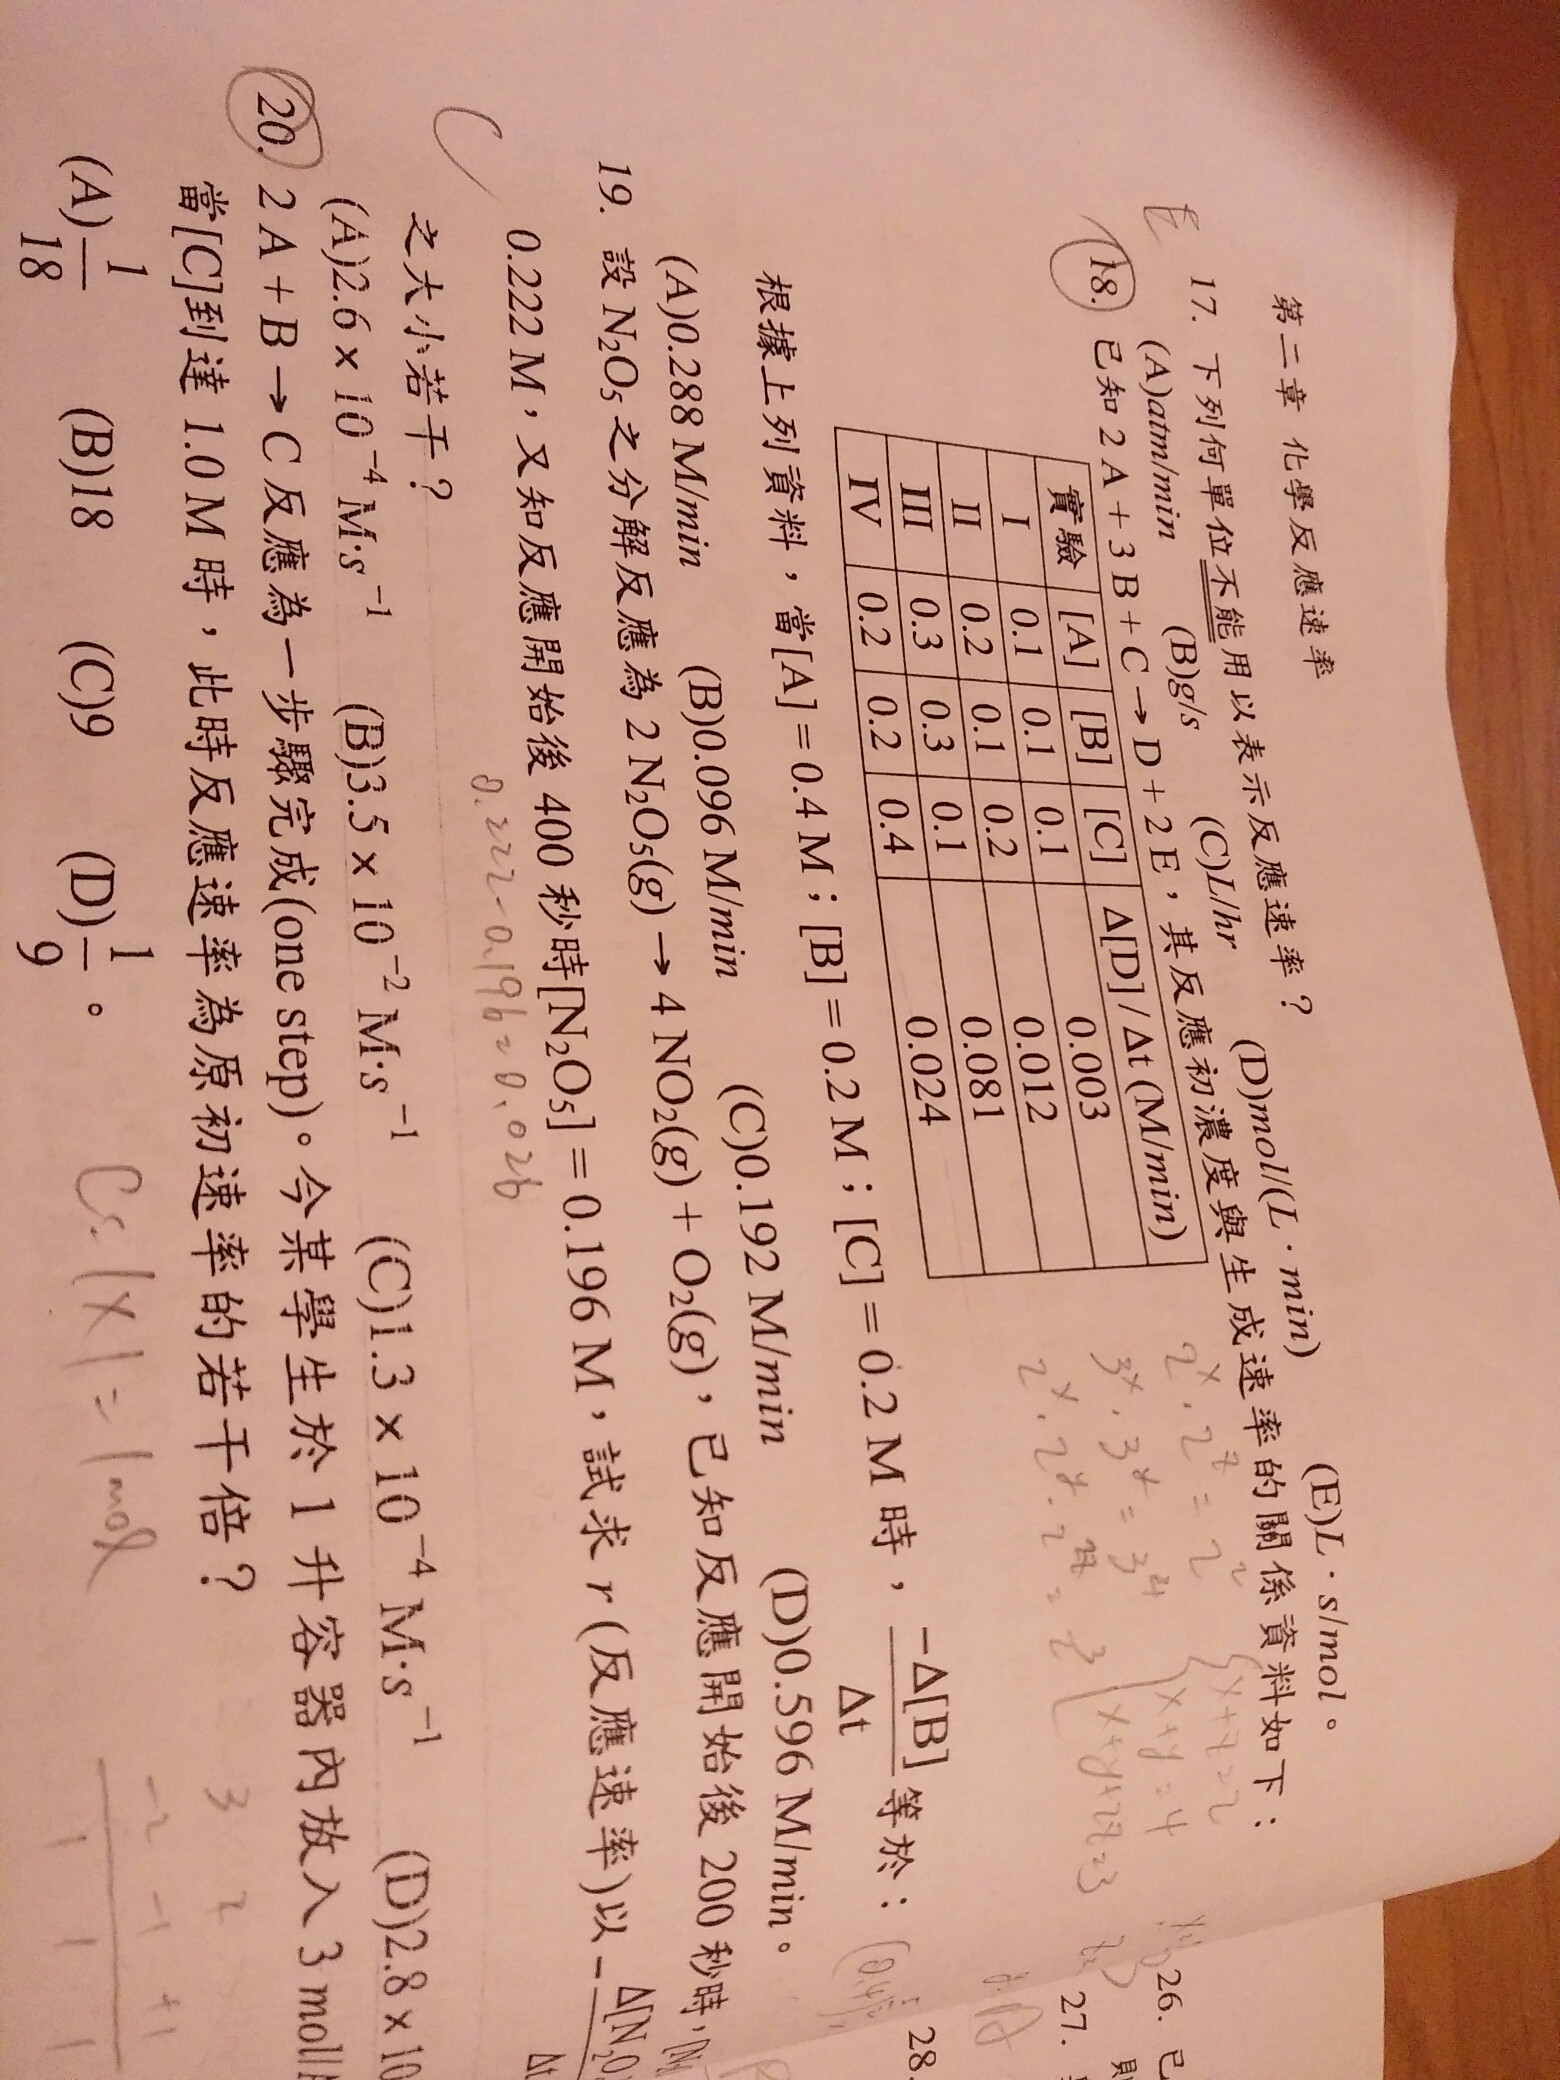 第二章 化學反應速率
E
17. 下列何單位不能用以表示反應速率？
(A)atm/min (B)g/s (C)L/hr (D)mol/(L·min) (E)L·s/mol。
18. 已知 2 A + 3 B + C → D + 2 E，其反應初濃度與生成速率的關係資料如下：
實驗 [A] [B] [C] Δ[D] / Δt (M/min)
I 0.1 0.1 0.1 0.003
II 0.2 0.1 0.2 0.012
III 0.3 0.3 0.1 0.081
IV 0.2 0.2 0.4 0.024
根據上列資料，當[A] = 0.4 M；[B] = 0.2 M；[C] = 0.2 M 時，−Δ[B]/Δt 等於：
(A)0.288 M/min (B)0.096 M/min (C)0.192 M/min (D)0.596 M/min。
C
19. 設 N₂O₅ 之分解反應為 2 N₂O₅(g) → 4 NO₂(g) + O₂(g)，已知反應開始後 200 秒時，
0.222 M，又知反應開始後 400 秒時[N₂O₅] = 0.196 M，試求 r (反應速率)以 − Δ[N₂O / Δt
之大小若干？
0.222 - 0.196 = 0.026
(A)2.6 × 10⁻⁴ M·s⁻¹ (B)3.5 × 10⁻² M·s⁻¹ (C)1.3 × 10⁻⁴ M·s⁻¹ (D)2.8 × 10
20. 2 A + B → C 反應為一步驟完成(one step)。今某學生於 1 升容器內放入 3 mol
當[C]到達 1.0 M 時，此時反應速率為原初速率的若干倍？
(A)1/18 (B)18 (C)9 (D)1/9。
C: 1 × 1 = 1 mol
3 2
-2 -1 +1
1 1 1
26. 已
則
27.
28.